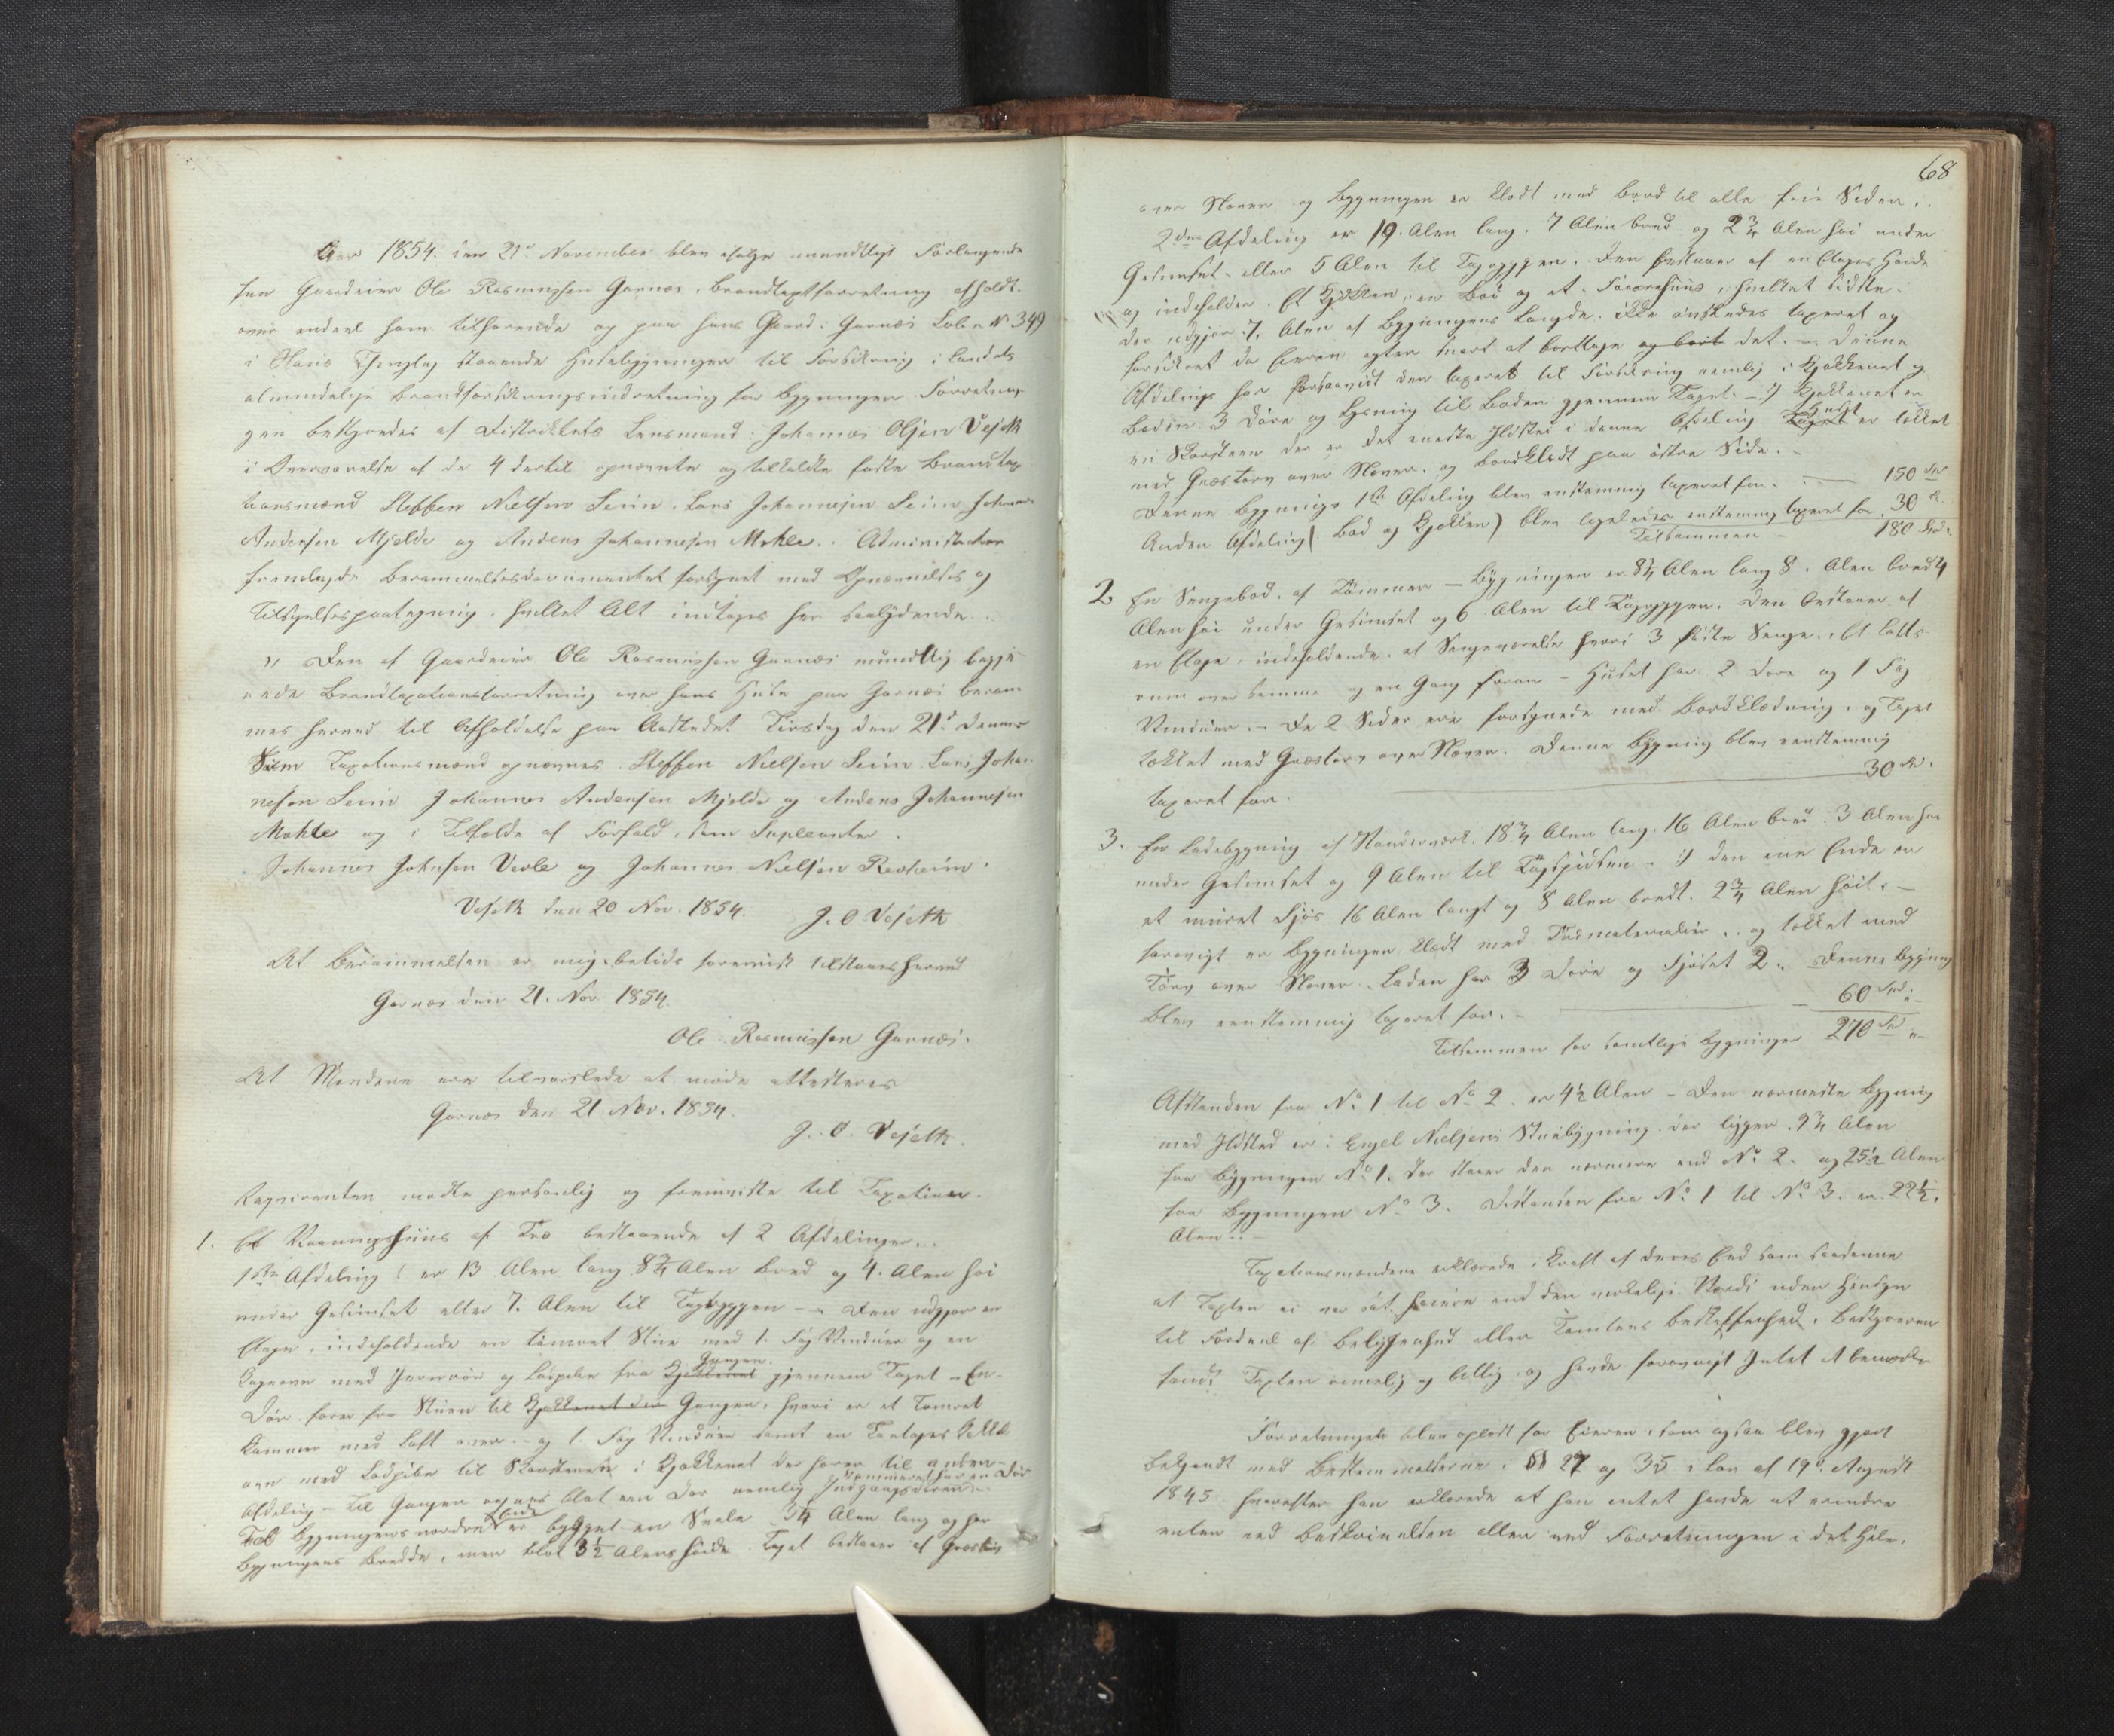 Aar 1854. den 21de November blev ifølge mundtligt Forlangende
fra Gaardeier Ole Rasmussen Garnæs, Brandtaxtforretning afholdt
over endeel ham tilhørende og paa hans Gaard: Garnæs Løbe N 349
i Haus Thinglag staaende Huusebygninger til Forsikring i Landets
almindelige Brandforsikringsindretning for Bygninger. Forretnin-
gen bestyredes af Districtets Lensmand: Johannes Olsen Vefeth
i Overværelse af de 4 dertil opnævnte og tilkaldte faste Brandtax-
tionsmænd Steffen Nielsen Seim, Lars Johannesen Seim Johannes
Andersen Mjelde og Anders Johannesen Mohle. Administrator
fremlagde Berammelsesdocumentet forsynet med Opnævnelses og
Tilsigelsespaategning, hvilket Alt indtages her saalydende.
" Den af Gaardeier Ole Rasmussen Garnæs mundtlig begjæ-
rede Brandtaxationsforretning over hans Huse paa Garnæs beram-
mes herved til Afholdelse paa Aastedet Tirsdag den 21de dennes
Som Taxationsmænd opnævnes Steffen Nielsen Seim, Lars Johan-
nesen Seim Johannes Andersen Mjelde og Anders Johannesen
Mohle og i Tilfælde af Forfald, som Supleanter.
Johannes Johnsen Vevle og Johannes Nielsen Revheim.
Vefeth den 20 Nov. 1854. J. O. Vefeth
At Berammelsen er mig betids foreviist tilstaaes herved
Garnæs den 21. Nov 1854.
Ole Rasmussen Garnæs.
At Mændene ere tilvarslede at møde attesteres
Garnæs den 21. Nov. 1854.
J. O. Vefeth.
Reqvirenten mødte personlig og fremviste til Taxation.
1. Et Vaaningshuus af Træ bestaaende af 2 Afdelinger..
1ste Afdeling: er 13 Alen lang 8¾ Alen bred og 4. Alen høi
under Gesimset eller 7. Alen til Tagryggen — Den udgjør en
Etage, indeholdende en tømret Stue med 1. Fag Vinduer og en
Kagovn med Jernrør og Ladpibe fra Kjøkkenet Gangen. gjennem Taget – En
Dør fører fra Stuen til Kjøkkenet der Gangen, hvori er et Tømret
Kammer med Loft over. og 1. Fag Vinduer samt en Toetages Kakkel-
ovn med Ladpibe til Skorstenen i Kjøkkenet der hører til anden
Afdeling – Til Gangen og ved blot een Dør nemlig Indgangsdøren Kammeret har en Dør
Ved Bygningens nordre Ende er bygget en Svale 3¼ Alen lang og har
Bygningens Bredde, men blot 3½ Alens Høide. Taget bestaaer af Græstørv
68
over Næver og Bygningen er klædt med Bord til alle fire Sider.
2den Afdeling er 19. Alen lang. 7 Alen bred og 2¾ Alen høi under
Gesimset eller 5 Alen til Tagryggen. Den bestaaer af en Etages Høide
og indeholder. Et Kjøkken, en Bod og et Forrørhuus, hvilket sidste
der udgjør 7, Alen af Bygningens Længde. ikke ønskedes taxeret og
forsikret da Eieren agter snart at borttage og bort det. — Denne
Afdeling har forsaavidt den taxeret til Forsikring nemlig i Kjøkkenet og
Boden 3 Døre og Lysning til Boden gjennem Taget. — I Kjøkkenet er
en Skorsteen der er det eneste Ildsted i denne Afdeling Taget Huset er tækket
med Græstørv over Næver. og bordklædt paa østre Side. –
Denne Bygnings 1ste Afdeling blev enstemmig taxeret for. — 150 Spd
Anden Afdeling ( Bod og Kjøkken ) blev ligeledes enstemmig taxeret for 30 "
Tilsammen – 180 Spd.
2 En Sengebod, af Tømmer — Bygningen er 8¼ Alen lang 8. Alen bred 4
Alen høi under Gesimset og 6 Alen til Tagryggen. Den bestaaer af
en Etage, indeholdende, et Sengeværelse hvori 3 faste Senge, Et Lofts-
rum over samme og en Gang foran – Huset har 2 Døre og 1 Fag
Vinduer. – De 2 Sider ere forsynede med Bordklædning, og Taget
tækket med Græstørv over Næver. Denne Bygning blev eenstemmig
taxeret for. 30 Spd.
3. En Ladebygning af Stavværk. 18¾ Alen lang. 16 Alen bred. 3 Alen høi
under Gesimset og 9 Alen til Tagspidsen – i den ene Ende er
et muret Fjøs 16 Alen langt og 8 Alen bredt. 2¾ Alen høit. –
forøvrigt er Bygningen klædt med Træmaterialier.. og tækket med
Tørv over Næver. Laden har 3 Døre og Fjøset 2. Denne Bygning
blev eenstemmig taxeret for. – 60 Spd.
Tilsammen for samtlige Bygninger 270 Spd "
Afstanden fra No 1 til No 2 er 4½ Alen – Den nærmeste Bygning
med Ildsted er: Engel Nielsens Stuebygning. der ligger. 9¾ Alen
fra Bygningen No 1. Der staaer den nærmere end No 2. og 25½ Alen
fra Bygningen No 3. Distancen fra No 1 til No 3. er 22½.
Alen..
Taxationsmændene erklærede i Kraft af deres Eed som saadanne
at Taxten ei var sat høiere end den virkelige Værdi uden Hensyn
til Fordeel af Beliggenhed eller Tomtens Beskaffenhed. Bestyreren
fandt Taxten rimelig og billig og havde forøvrigt Intet at bemærke
Forretningen blev oplæst for Eieren, som ogsaa blev gjort
bekjendt med Bestemmelserne i §§ 27 og 35 i Lov af 19de August
1845 hvorefter han erklærede at han intet havde at erindre
enten ved Beskrivelsen eller ved Forretningen i det Hele.